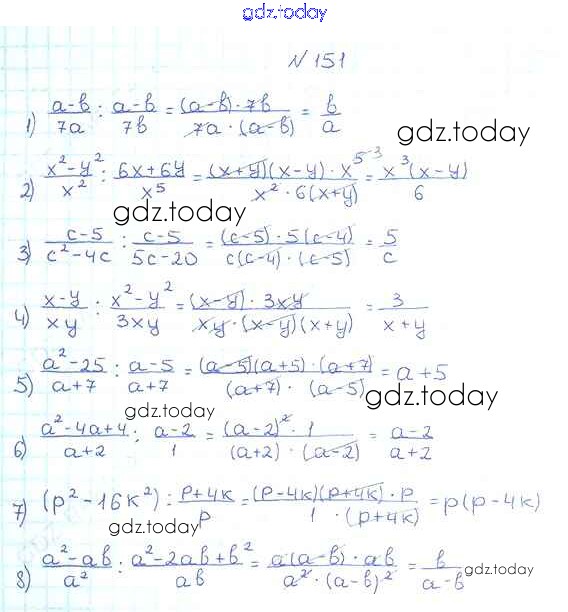 gdz.today
N 151
1) (a-b)/(7a) : (a-b)/(7b) = ((a-b)·7b)/(7a·(a-b)) = b/a
gdz.today
2) (x²-y²)/x² : (6x+6y)/x⁵ = ((x+y)(x-y)·x⁵⁻³)/(x²·6(x+y)) = (x³(x-y))/6
gdz.today
3) (c-5)/(c²-4c) : (c-5)/(5c-20) = ((c-5)·5(c-4))/(c(c-4)·(c-5)) = 5/c
4) (x-y)/(xy) : (x²-y²)/(3xy) = ((x-y)·3xy)/(xy·(x-y)(x+y)) = 3/(x+y)
5) (a²-25)/(a+7) : (a-5)/(a+7) = ((a-5)(a+5)·(a+7))/((a+7)·(a-5)) = a+5
gdz.today
gdz.today
6) (a²-4a+4)/(a+2) : (a-2)/1 = ((a-2)²·1)/((a+2)·(a-2)) = (a-2)/(a+2)
7) (p²-16k²) : (p+4k)/p = ((p-4k)(p+4k)·p)/(1·(p+4k)) = p(p-4k)
gdz.today
8) (a²-ab)/a² : (a²-2ab+b²)/(ab) = (a(a-b)·ab)/(a²·(a-b)²) = b/(a-b)
gdz.today